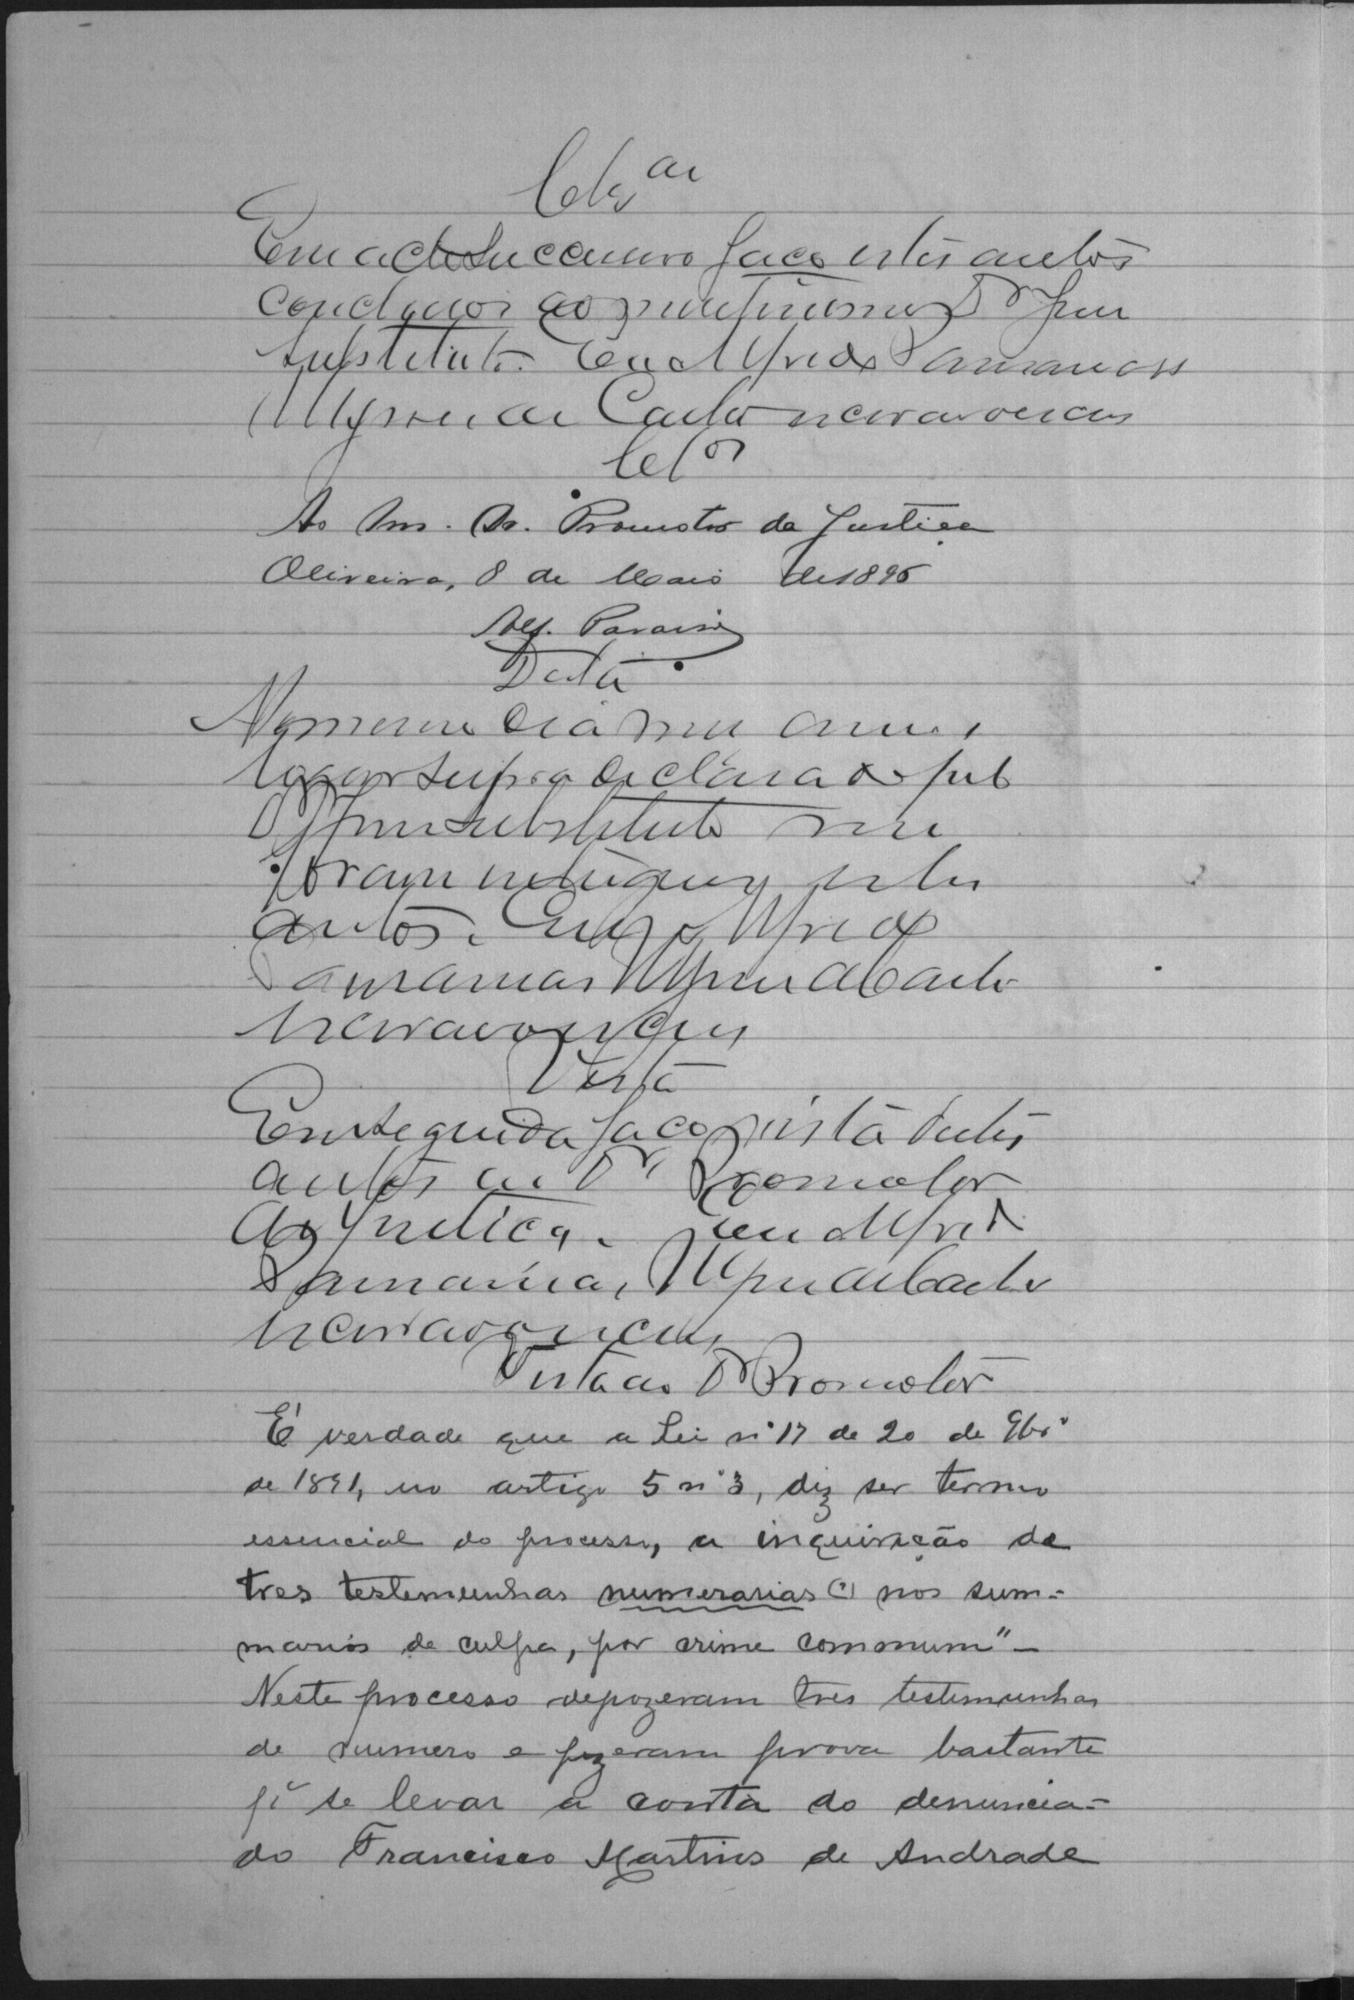 Clsam
Em acto succcessivo faço estes autos
conclusos ao meretissimo Dr Juiz
substituto. Eu Alfredo
de Castro
Clsos
Ao Im. Dr. Promotor da Justiça
Oliveira, 8 de Maio de 1896
Alf. Paraiso
Data
No mesmo dia mez anno e
logar supra declarado pelo
Dr Juiz substituto me
foram entregues estes
autos. Eu, Alfredo
de Castro
Vista
Em seguida faço vista d'estes
autos ao Dr Promotor
da Justiça. Eu Alfredo
de Castro
Vista ao Dr Promotor
É verdade que a Lei nº 17 de 20 de 9bro
de 1891, no artigo 5 nº 3, diz ser termo
essencial do processo, a inquirição de
tres testemunhas numerarias (") nos sum-
marios de culpa, por crime commum" –
Neste processo depozeram tres testemunhas
de numero e fizeram prova bastante
pª se levar a conta do denuncia-
do Francisco Martins de Andrade